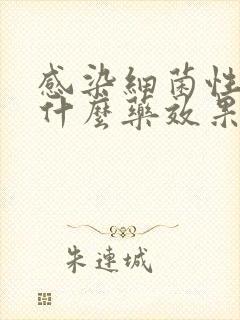 感染細菌性
什麼藥效果
朱連城